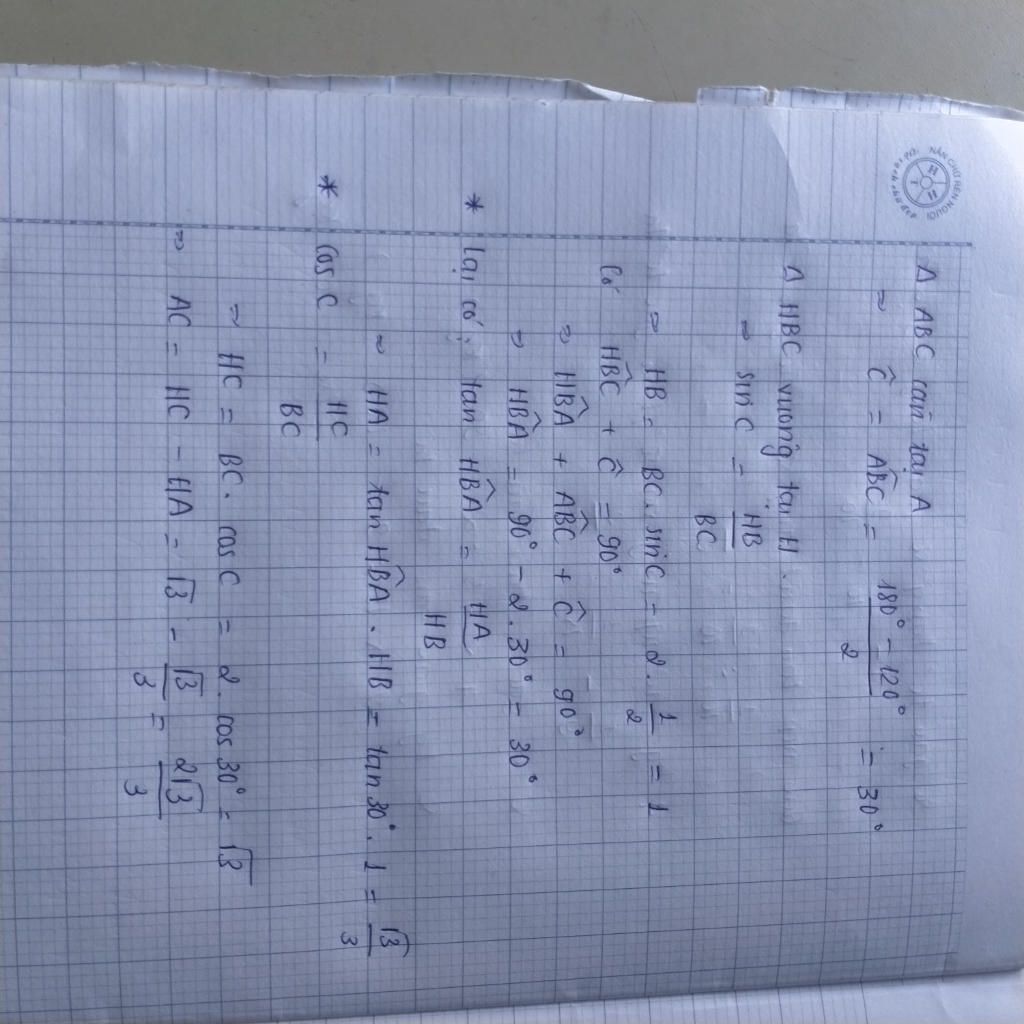 NẮN CHỮ RÈN NGƯỜI
Δ ABC cân tại A
⇒ Ĉ = AB̂C = (180° - 120°)/2 = 30°
Δ HBC vuông tại H.
⇒ sin C = HB/BC
⇒ HB = BC. sin C = 2. 1/2 = 1
Có HB̂C + Ĉ = 90°
⇒ HB̂A + AB̂C + Ĉ = 90°
⇒ HB̂A = 90° - 2.30° = 30°
* Lại có: tan HB̂A = HA/HB
⇒ HA = tan HB̂A. HB = tan 30°. 1 = √3/3
* cos C = HC/BC
⇒ HC = BC. cos C = 2. cos 30° = √3
⇒ AC = HC - HA = √3 - √3/3 = 2√3/3